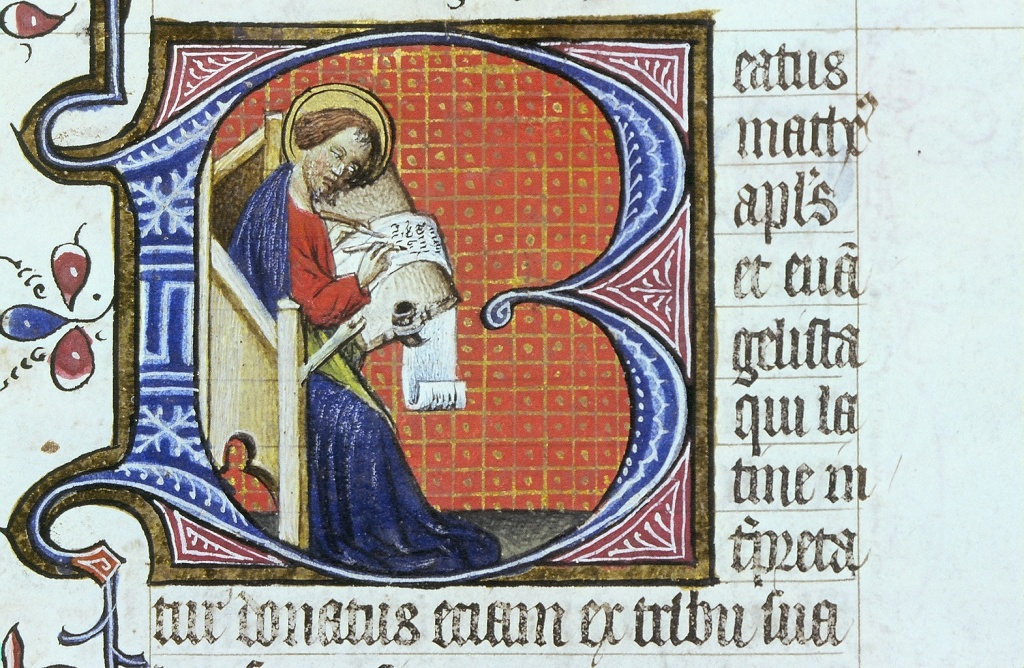 Beatus
mathe᷒
apl's
et euā
gelista
qui la
tine in
t̄preta
tur donatus etiam ex tribu sua